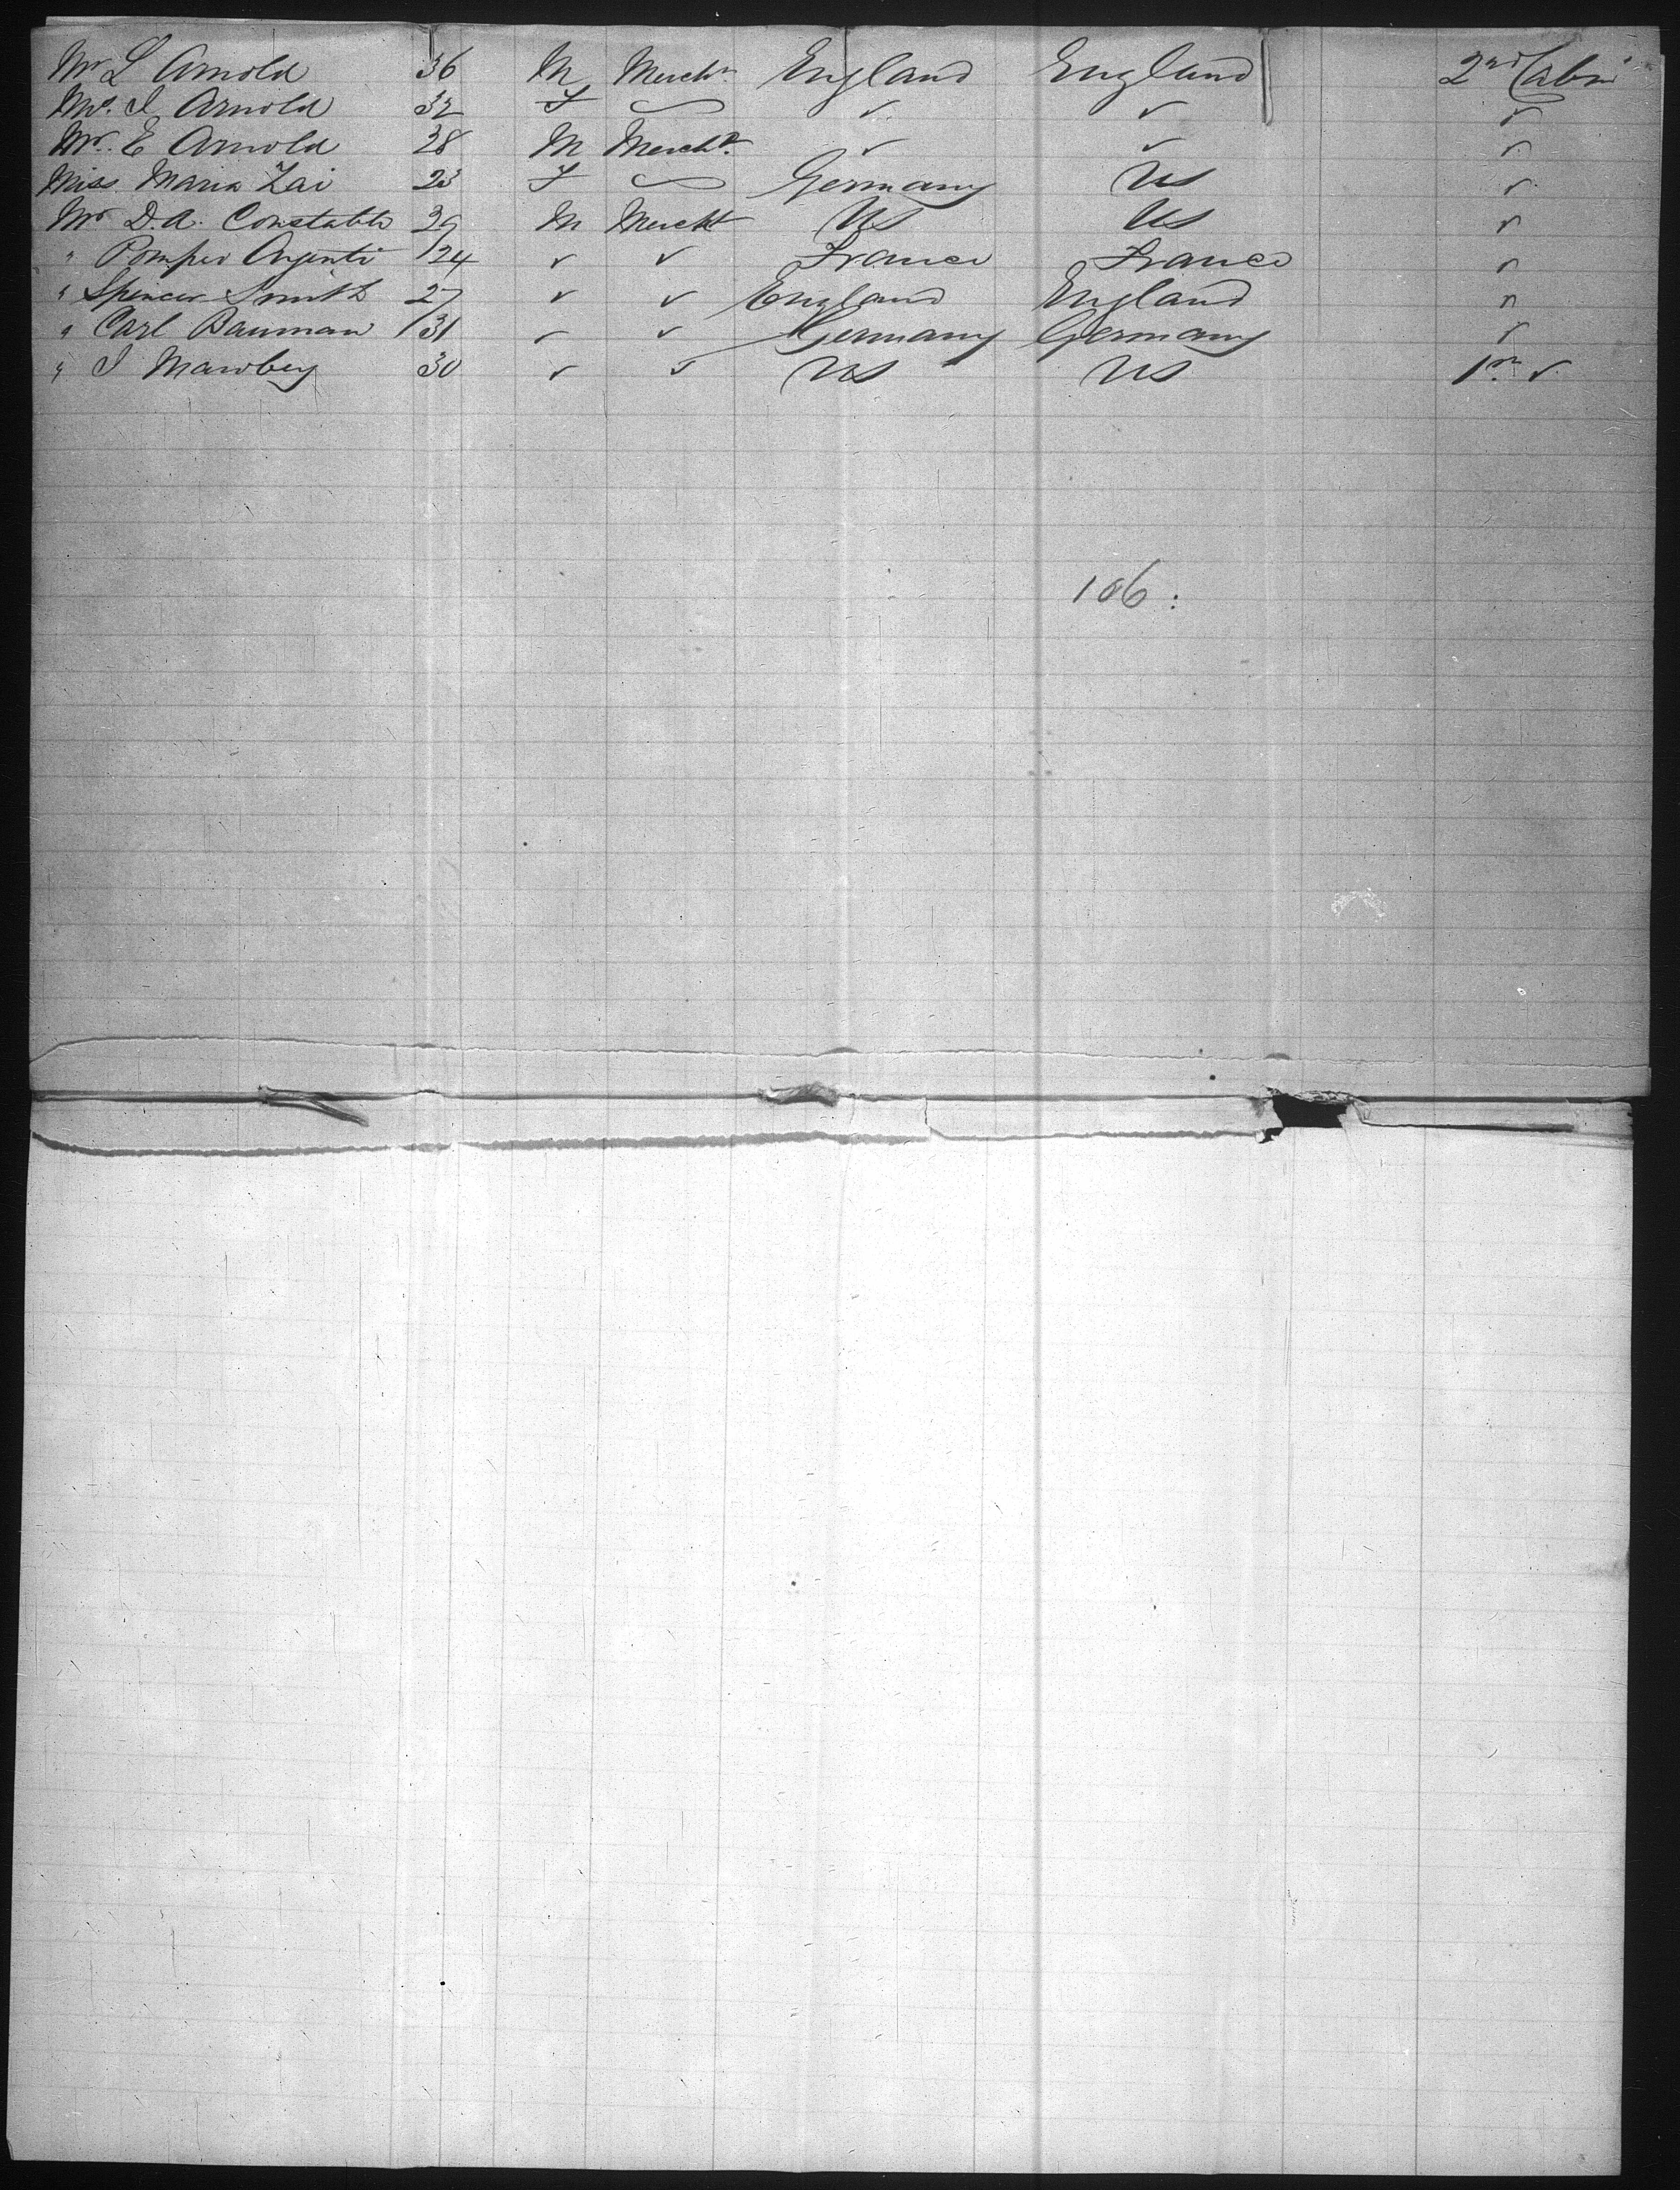 Mr L Arnold 36 M Mercht England England 2nd Cabin
Mrs. I Arnold 32 F ~ ✓ ✓ ✓
Mr. E Arnold 28 M Mercht. ✓ ✓ ✓
Miss Maria Zai 23 F ~ Germany US ✓
Mr D.A. Constable 39 M Mercht US US ✓
" Pompeo Argenti 24 ✓ ✓ France France ✓
" Spencer Smith 27 ✓ ✓ England England "
" Carl Bauman 31 ✓ ✓ Germany Germany ✓
" I Mawbey 30 ✓ ✓ US US 1st ✓
106: